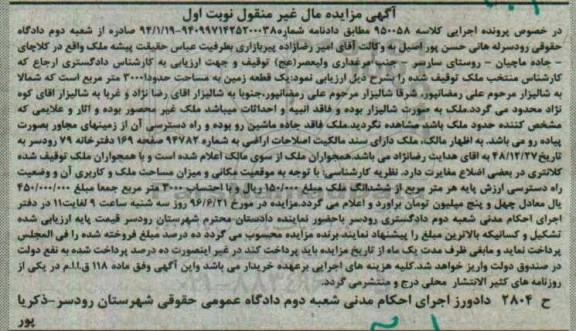 آگهی مزایده مال غیر منقول نوبت اول
در خصوص پرونده اجرایی کلاسه ۹۵۰۰۵۸ مطابق دادنامه شماره ۹۴۰۹۹۷۱۴۲۵۲۰۰۰۳۸-۹۴/۱/۱۹ صادره از شعبه دوم دادگاه
حقوقی رودسر له هانی حسن پور اصیل به وکالت آقای امیر رضازاده پیربازاری بطرفیت عباس حقیقت پیشه ملک واقع در کلاچای
- جاده ماچیان - روستای سارسر - جنب مرغداری ولیعصر(عج) توقیف و جهت ارزیابی به کارشناس دادگستری ارجاع که
کارشناس منتخب ملک توقیف شده را بشرح ذیل ارزیابی نمود:یک قطعه زمین به مساحت حدودا ۳۰۰۰ متر مربع است که شمالا
به شالیزار مرحوم علی رمضانپور، شرقا شالیزار مرحوم علی رمضانپور،جنوبا به شالیزار اقای رضا نژاد و غربا به شالیزار اقای کوه
نژاد محدود می گردد.ملک به صورت شالیزار بوده و فاقد انبیه و احداثات میباشد ملک غیر محصور بوده و آثار و علایمی که
مشخص کننده حدود ملک باشد مشاهده نگردید.ملک فاقد جاده ماشین رو بوده و راه دسترسی آن از زمینهای مجاور بصورت
پیاده رو می باشد. به اظهار مالک، ملک دارای سند مالکیت اصلاحات اراضی به شماره ۹۴۷۸۲ صفحه ۱۶۹ دفترخانه ۷۹ رودسر به
تاریخ ۴۸/۱۲/۲۷ به اقای هدایت رضانژاد می باشد.همجواران ملک از سوی مالک اعلام شده است و با همجواران ملک توقیف شده
کلانتری در بعضی اضلاع مغایرت دارد. نظریه کارشناسی: با توجه به موقعیت مکانی و میزان مساحت ملک و کاربری آن و وضعیت
راه دسترسی ارزش پایه هر متر مربع از ششدانگ ملک مبلغ ۱۵۰/۰۰۰ ریال و با احتساب ۳۰۰۰ متر مربع جمعا مبلغ ۴۵۰/۰۰۰/۰۰۰
یال معادل چهل و پنج میلیون تومان برآورد و اعلام می گردد.مزایده در مورخ ۹۶/۶/۲۱ روز سه شنبه ساعت ۹ لغایت ۱۱ در دفتر
اجرای احکام مدنی شعبه دوم دادگستری رودسر باحضور نماینده دادستان محترم شهرستان رودسر قیمت پایه ارزیابی شده
تشکیل و کسانیکه بالاترین مبلغ را پیشنهاد نمایند برنده مزایده محسوب می گردد ده درصد مبلغ فروخته شده را فی المجلس
پرداخت نماید و مابقی ظرف مدت یک ماه از تاریخ مزایده باید پرداخت کند در غیر اینصورت ده درصد پرداخت شده به نفع دولت
در صندوق دولت واریز خواهد شد.کلیه هزینه های اجرایی برعهده خریدار می باشد واین آگهی وفق ماده ۱۱۸ ق.ا.ا.م در یکی از
روزنامه های کثیر الانتشار محلی درج و منتشر می گردد.
ح ۲۸۰۴ دادورز اجرای احکام مدنی شعبه دوم دادگاه عمومی حقوقی شهرستان رودسر-ذکریا
پور